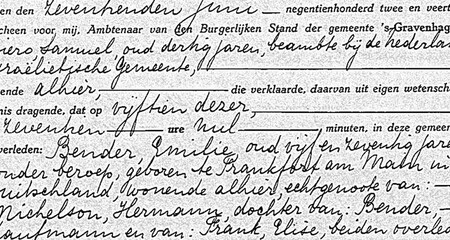 en den zeventienden Juni — negentienhonderd twee en veert
cheen voor mij, Ambtenaar van den Burgerlijken Stand der gemeente 's-Gravenhag
Samuel oud dertig jaren, beambte bij de Nederlan
sraëlietische Gemeente,
ende alhier, — die verklaarde, daarvan uit eigen wetensch
nis dragende, dat op vijftien dezer, —
zeventien — ure nul —, minuten, in deze gemeen
verleden: Bender, Emilie, oud vijf en zeventig jare
onder beroep, geboren te Frankfort am Main in
uitschland wonende alhier, echtgenoote van: —
Michelson, Hermann, dochter van: Bender, —
aufmann en van: Frank, Elise, beiden overled